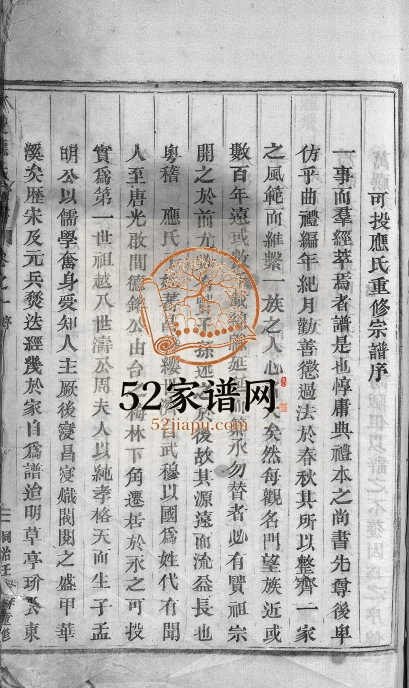 可投應氏重修宗譜序
一事而羣經萃焉者譜是也惇庸典禮本之尚書先尊後卑
仿乎曲禮編年紀月勸善懲過法於春秋其所以整齊一家
之風範而維繫一族之人心 矣然每觀名門望族近或
數百年遠或數 永勿替者必有賢祖宗
開之於前尤 賢子孫延 於後故其源遠而流益長也
粵稽 應氏 自武穆以國爲姓代有聞
人至唐光啟間德銘公由台 梅林下角遷居於永之可投
實爲第一世祖越八世濤公周夫人以純孝格天而生子孟
明公以儒學奮身受知人主厥後寖昌寖熾閥閱之盛甲華
溪矣歷宋及元兵燹迭經幾於家自爲譜迨明草亭玠 東
同治壬 重修
52家谱网
52jiapu.com